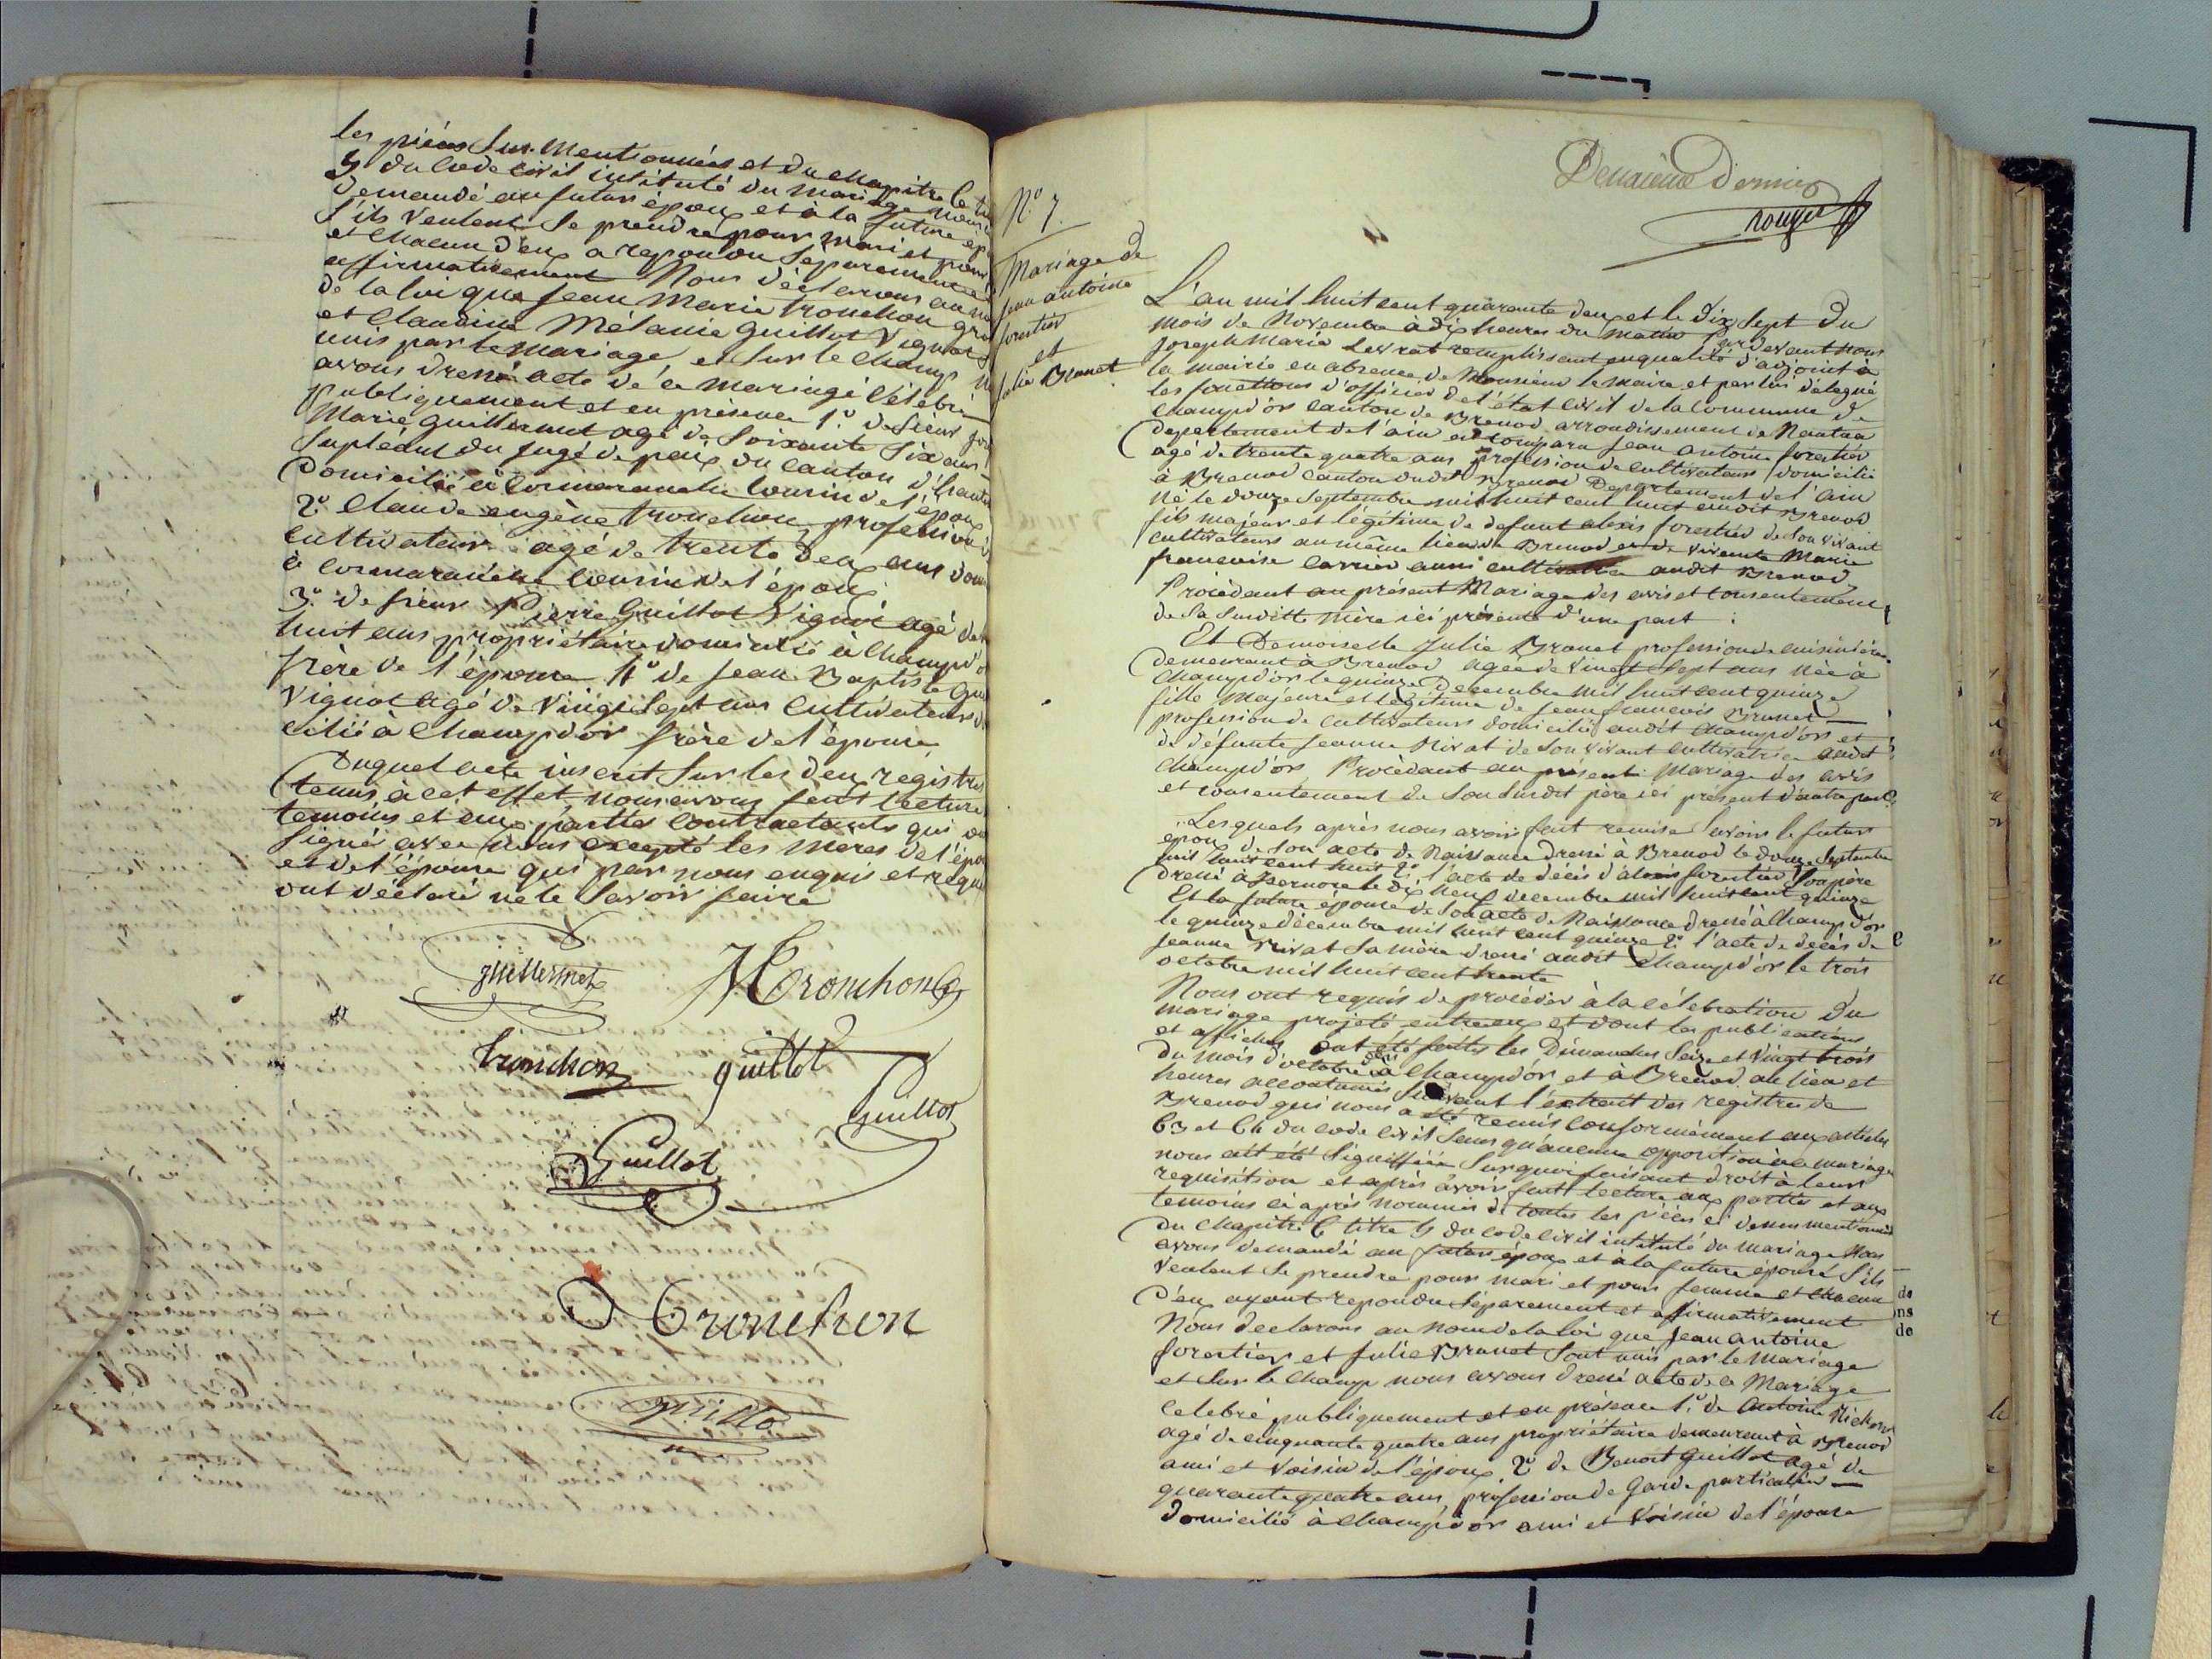 les pièces sus-mentionnées et du chapitre 6 
5 du code civil intitulé du mariage nous
demandé au futur époux et à la future ép
s'ils veulent se prendre pour mari et pour
et chacun d'eux a repondu séparement
affirmativement Nous déclarons au no
de la loi que Jean Marie tronchon
et Claudine Mélanie Guillot Vignot
unis par le mariage et sur le champ
avons dressé acte de ce mariage célébré
publiquement et en présence 1° de sieur
Marie Guillermet agé de soixante six ans
supléant du juge de paix du canton d'haute
domicilié à Cormaranche cousin de l'époux
2° Claude eugène tronchon profession
cultivateur agé de trente deux ans dom
à Cormaranche cousin de l'époux
3° de sieur Pierre Guillot Vignot agé de
huit ans propriétaire domicilié à Champd'o
frère de l'épouse 4° de Jean Baptiste Gui
Vignot agé de vingt sept ans cultivateur d
cilié à Champd'or frère de l'épouse
Duquel acte inscrit sur les deux régistres
tenus à cet effet, nous avons fait lecture
temoins et aux partties contractants qui o
signé avec nous excepté les meres de l'épo
et de l'épouse qui par nous enquis et requ
ont déclaré ne le savoir faire
guillermet
tronchon
tronchon
guillot
guillot
Guillot
tronchon
guillot
Deuxième Dernier
rouyer
N° 7.
Mariage de
jean antoine
forestier
et
julie Brunet
L'an mil huit cent quarante deux et le dix sept du
mois de Novembre à dix heures du matin Pardevant nous
Joseph Marie Levrat remplissant en qualité d'adjoint à
la mairie en absence de Monsieur le maire et par lui délegué
les fonctions d'officier de l'état civil de la commune de
Champd'or canton de Brenod arrondissement de Nantua
departement de l'ain est comparu Jean Antoine forestier
agé de trente quatre ans profession de cultivateur domicilié
à Brenod canton dudit Brenod Departement de l'ain
né le douze septembre mil huit cent huit audit Brenod
fils majeur et légitime de defunt alexis forestier de son vivant
cultivateur au même lieu de Brenod et de vivente Marie
francoise Carrier aussi cultivatrice audit Brenod
Procèdant au présent Mariage des avis et consentement
de sa susditte mère ici présente d'une part :
Et Demoiselle Julie Brunet profession de cuisinière
demeurant à Brenod agée de vingt sept ans née à
Champd'or le quinze Decembre mil huit cent quinze
fille majeure et légitime de Jean francois Brunet
profession de cultivateur domicilié audit Champd'or et
de défunte Jeanne Nivat de son vivant cultivatrice audit
Champd'or, Procèdant au présent mariage des avis
et consentement de son susdit père ici présent d'autre part
Lesquels après nous avoir fait remise savoir le futur
époux de son acte de Naissance dressé à Brenod le douze Septembre
mil huit cent huit 2° l'acte de décès d'alexis forestier son père
dressé à Izernore le dix neuf decembre mil huit cent quinze
Et la future épouse de son acte de Naissance dressé à Champd'or
le quinze décembre mil huit cent quinze 2° l'acte de decès de
Jeanne Nivat sa mère dressé audit Champd'or le trois
octobre mil huit cent trente
Nous ont requis de procéder à la célebration du
mariage projeté entre eux et dont les publications
et affiches ont été faittes les Dimanches Seize et Vingt trois
du mois d'octobre à Champd'or et à Brenod au lieu et
heures accoutumés suivant l'extrait des registres de
Brenod qui nous a été remis conformément aux articles
63 et 64 du code civil sans qu'aucune opposition à ce mariage
nous ait été signiffiée Sur quoi faisant droit à leur
requisition et après avoir fait lecture aux partties et aux
temoins ci après nommés de toutes les pièces ci dessus mentionnées
du Chapitre 6 titre 5 du code civil intitulé du mariage Nous
avons demandé au futur époux et à la future épouse s'ils
veulent se prendre pour mari et pour femme et chacun
d'eux ayant repondu séparement et affirmativement
Nous declarons au nom de la loi que Jean Antoine
forestier et Julie Brunet sont unis par le mariage
et sur le champ nous avons dressé acte de ce Mariage
celebré publiquement et en présence 1° de Antoine
agé de cinquante quatre ans propriétaire demeurant à Brenod
ami et voisin de l'époux, 2° de Benoit Guillot agé de
quarante quatre ans, profession de Garde particulier
domicilié à Champd'or ami et voisin de l'épouse